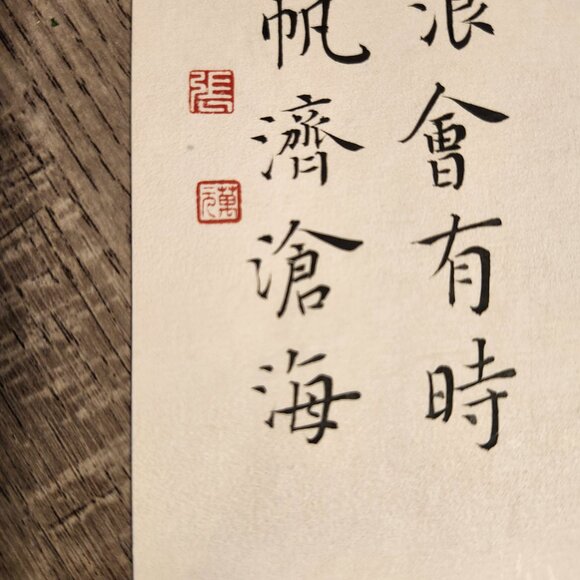 浪會有時
帆濟滄海
張
萬